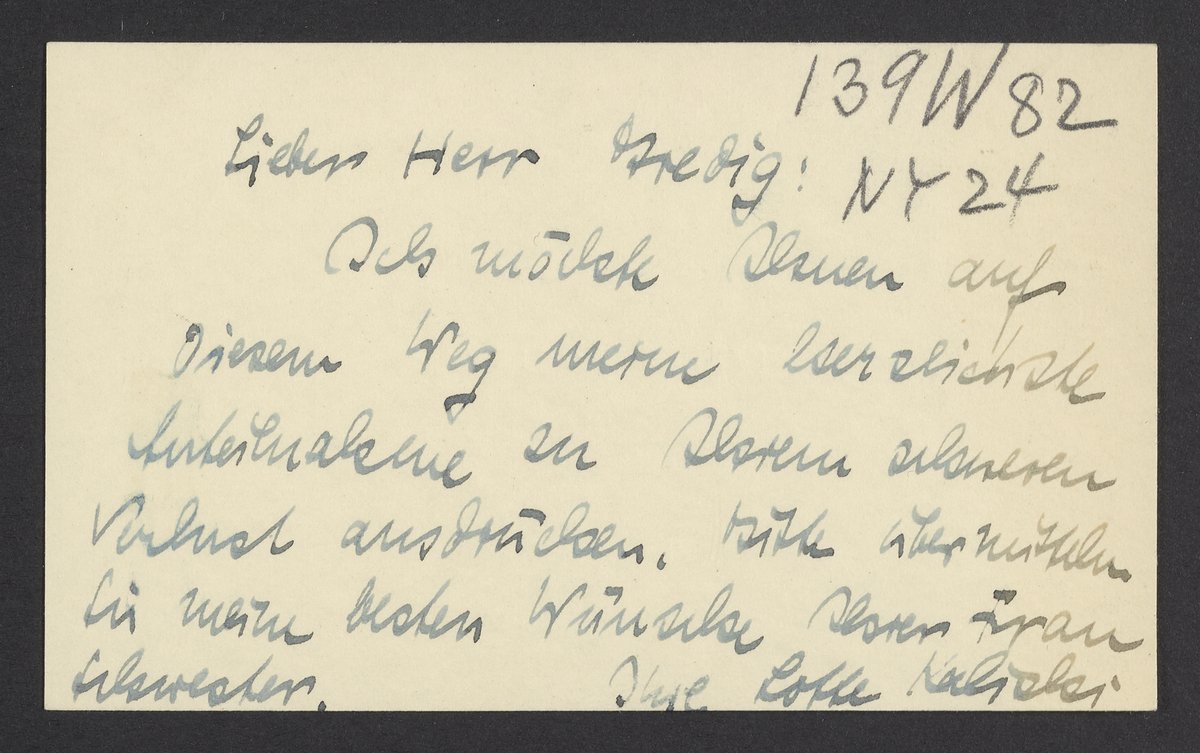 139 W 82
NY 24
Lieber Herr Bredig:
Ich möchte Ihnen auf
diesem Weg meine herzlichste
Anteilnahme zu Ihrem schweren
Verlust ausdrücken. Bitte übermitteln
Sie meine besten Wünsche Ihrer Frau
Schwester. Ihre Lotte Kaliski